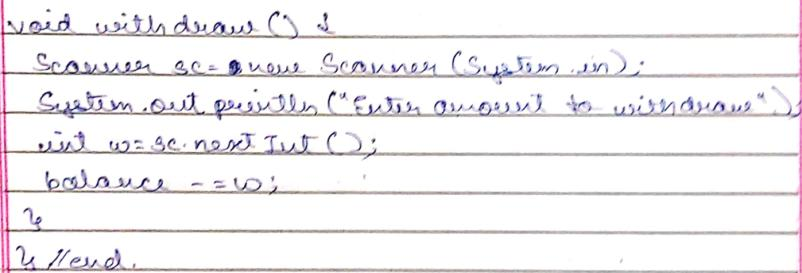 void withdraw() {
Scanner sc= new Scanner (System.in);
System.out println ("Enter amount to withdraw");
int w= sc.next Int ();
balance -=w;
}
} //end.